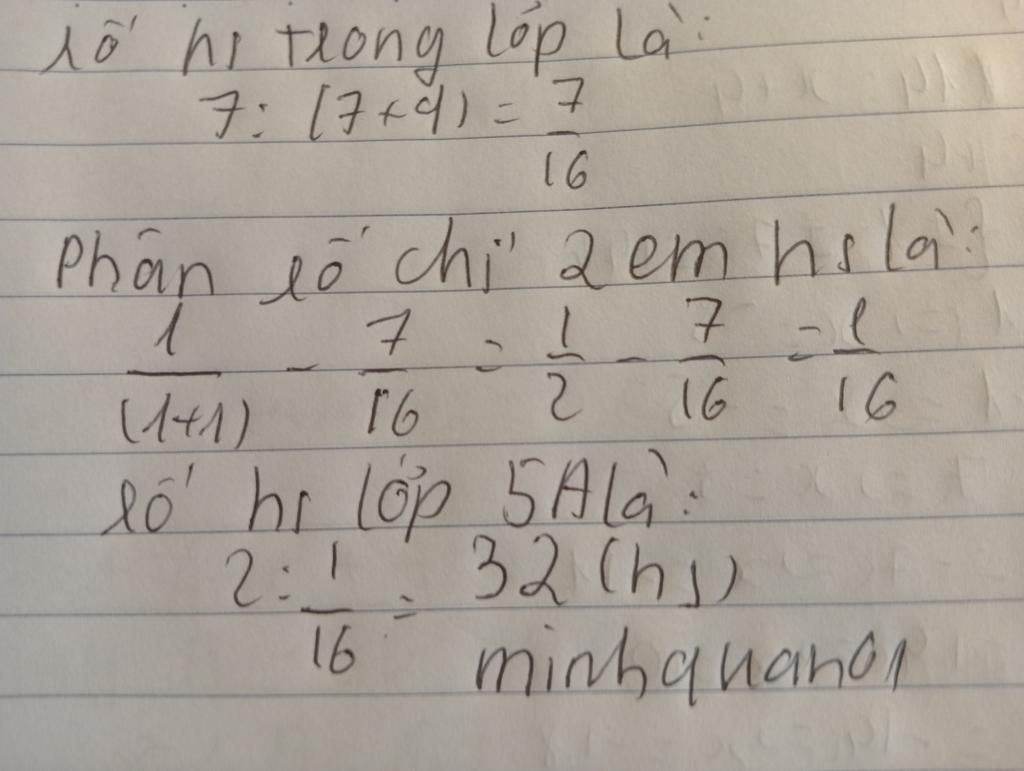 số hs trong lớp là:
7 : (7+9) = 7/16
Phân số chỉ 2 em hs là:
1/(1+1) - 7/16 = 1/2 - 7/16 = 1/16
số hs lớp 5A là:
2 : 1/16 = 32 (hs)
minhquan01